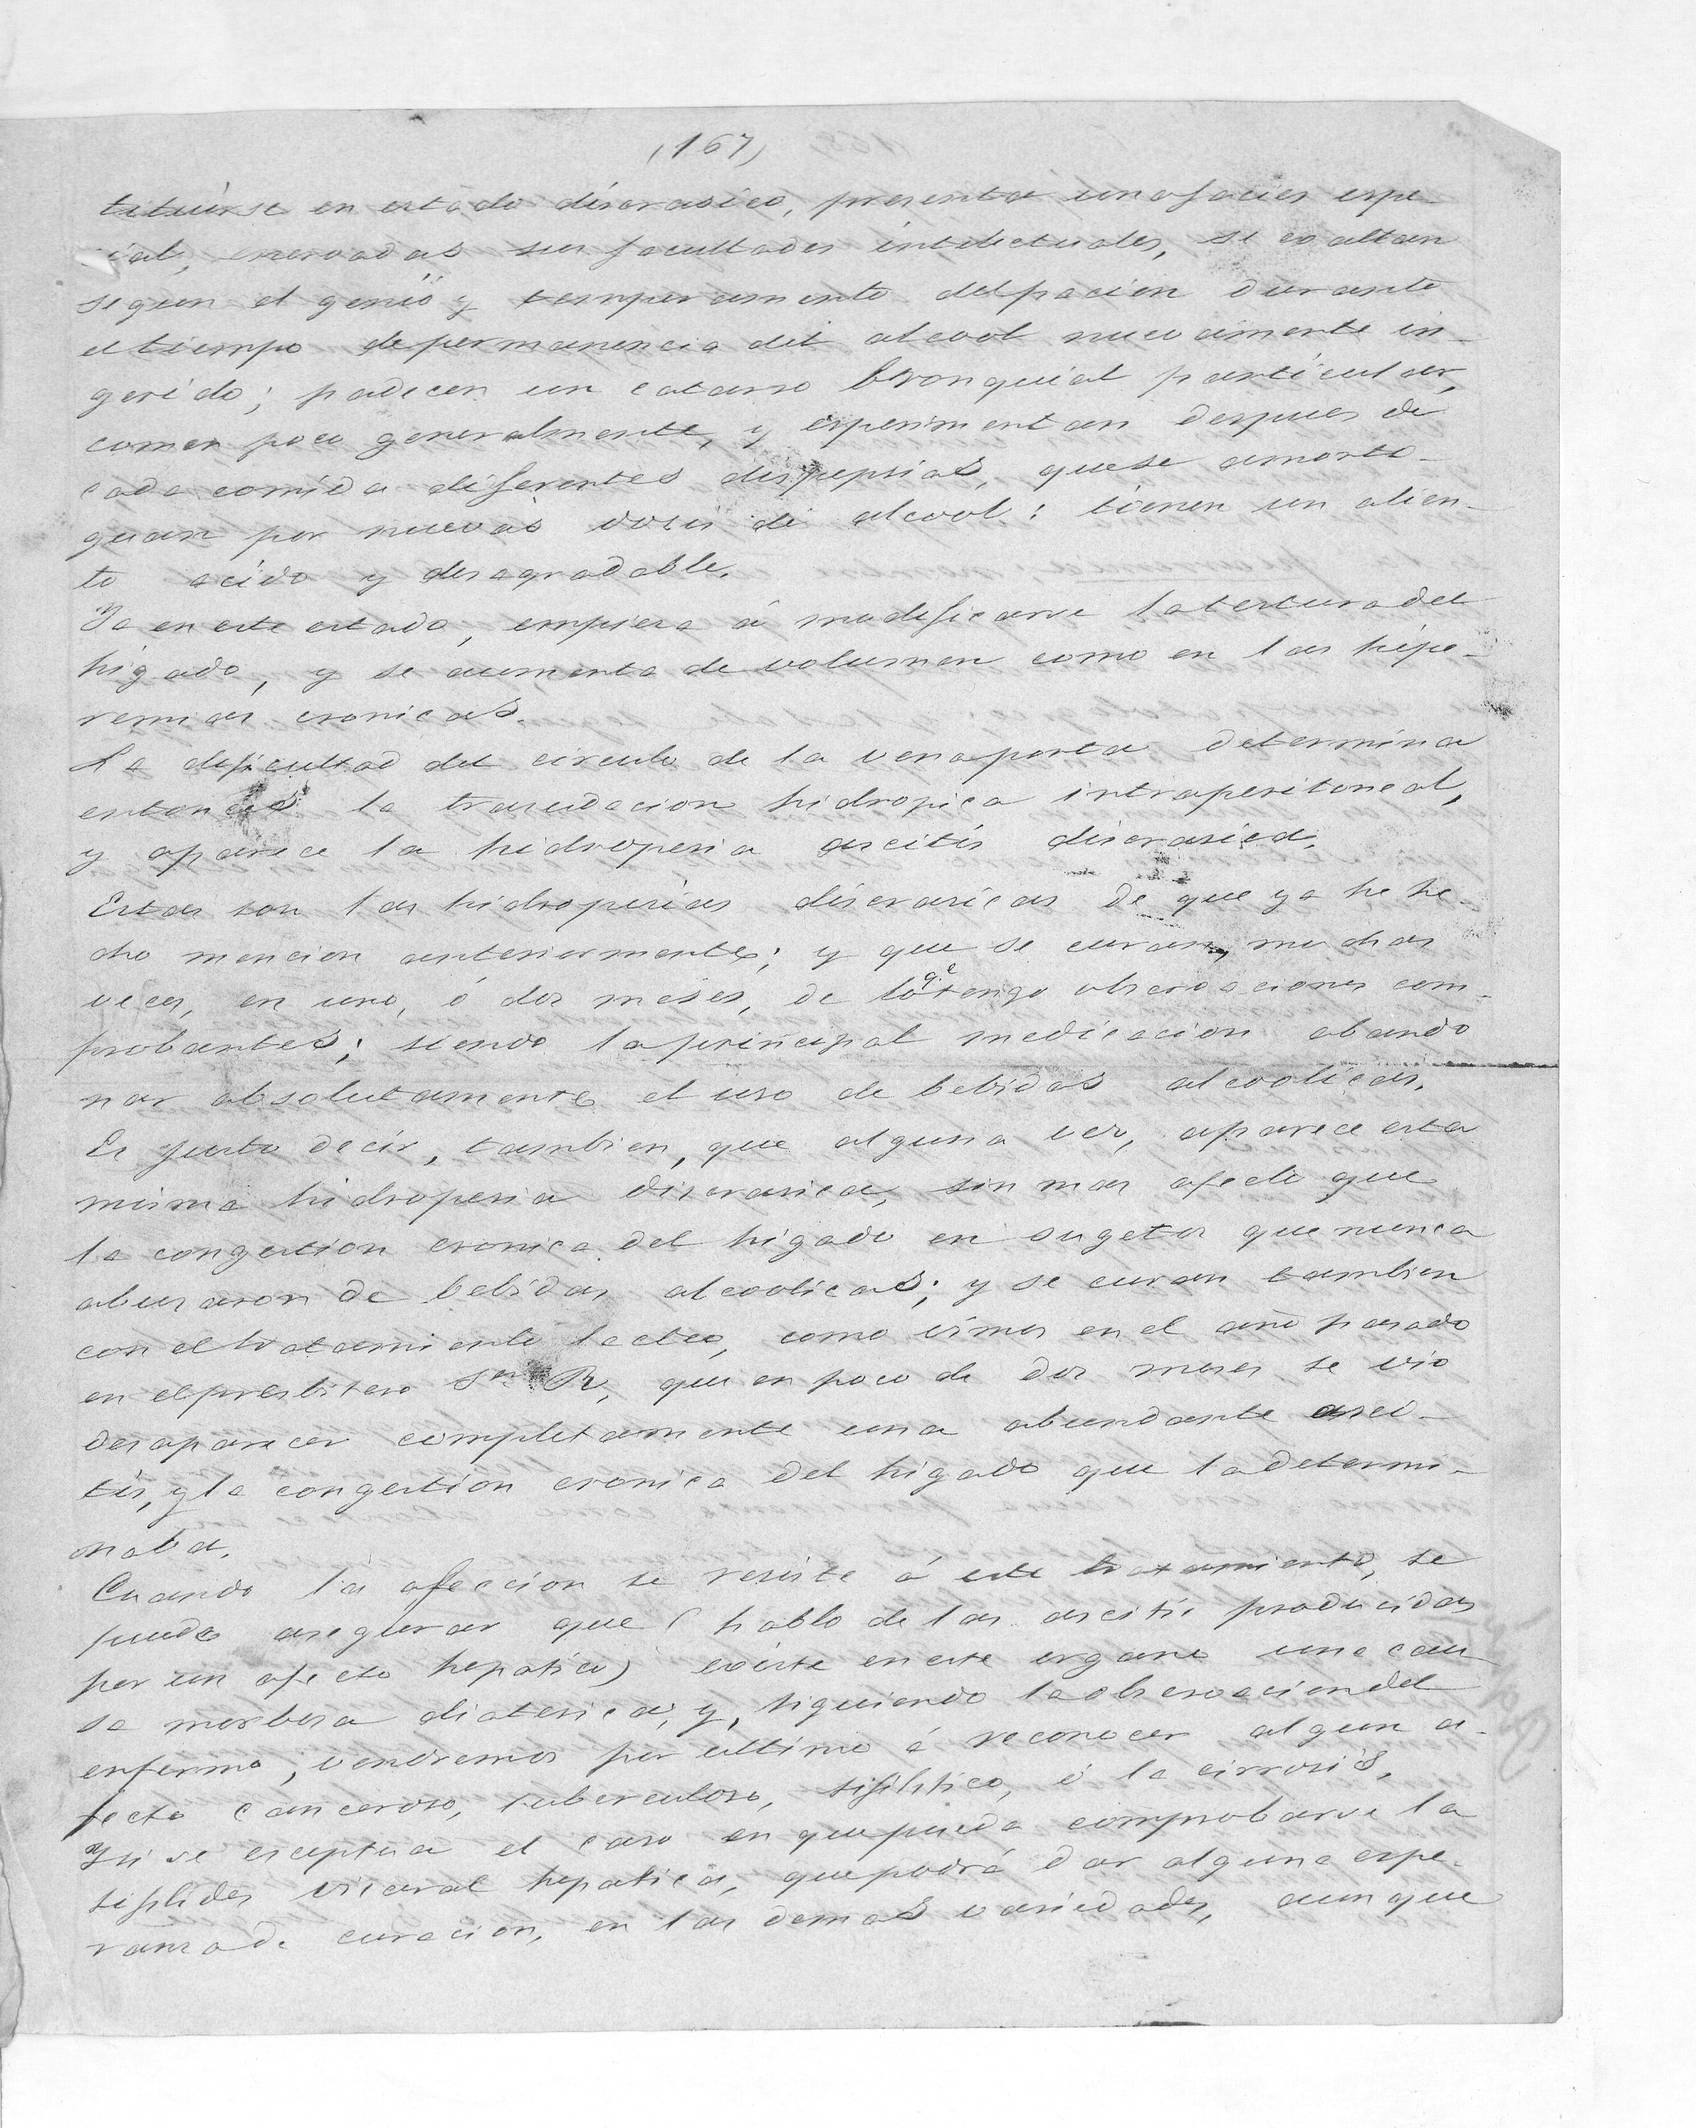 (167)
tituirse en estado discrasico, presenta una facies espe-
cial, enervadas sus facultades intelectuales, se exaltan
segun el genio y temperamento del pacien durante
el tiempo de permanencia del alcool nuevamente in-
gerido; padecen un catarro bronquial particular,
comen poco generalmente, y esperimentan despues de
cada comida diferentes dispepsias, que se amorti-
guan por nuevas dosis de alcool: tienen un alien-
to acido y desagradable.
Ya en este estado, empiesa á modificarse la testura del
higado, y se aumenta de volumen como en las hipe-
remias cronicas.
La dificultad del circulo de la vena porta determina
entonces la trasudacion hidropica intraperitoneal,
y aparece la hidropesia ascitis discrasica.
Estas son las hidropesias discrasicas de que ya he he-
cho mencion anteriormente; y que se curan, muchas
veces, en uno, ó dos meses, de lo q.e tengo observaciones com-
probantes; siendo la principal medicacion abando
nar absolutamente el uso de bebidas alcoolicas.
Es justo decir, tambien, que alguna vez, aparece esta
misma hidropesia discrasica, sin mas afecto que
la congestion cronica del higado en sugetos que nunca
abusaron de bebidas alcoolicas; y se curan tambien
con el tratamiento lacteo, como vimos en el año pasado
en el presbitero S.or R, que en poco de dos meses se vio
desaparecer completamente una abundante asci-
tis, y la congestion cronica del higado que la determi-
naba.
Cuando la afeccion se resiste á este tratamiento, se
puede asegurar que (hablo de las ascitis producidas
por un afecto hepatico) existe en este organo una cau
sa morbosa diatesica, y, siguiendo la observacion del
enfermo, vendremos por ultimo á reconocer algun a-
fecto canceroso, tuberculoso, sifilitico, ó la cirrosis.
Y si se esceptua el caso en que pueda comprobarse la
sifilides visceral hepatica, que podrá dar alguna espe-
ransa de curacion, en las demas variedades, aunque